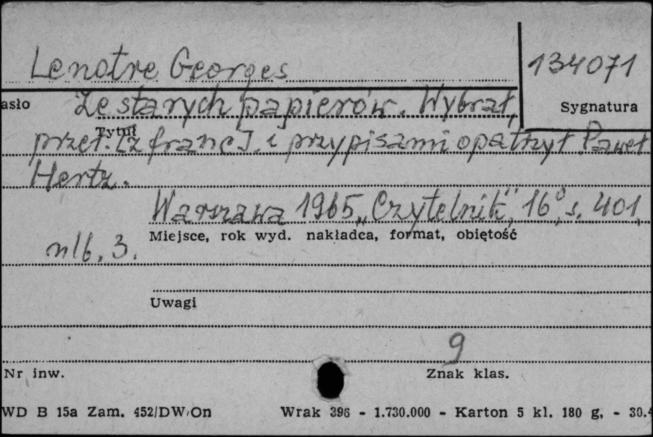 Lenotre Georges
134071
asło
Ze starych papierów. Wybrał,
Sygnatura
Tytuł
przeł. [z franc]. i przypisami opatrzył Paweł
Hertz.
Warszawa 1965 „Czytelnik", 16°, s. 401,
Miejsce, rok wyd. nakładca, format, obiętość
nlb. 3.
Uwagi
9
Nr inw.
Znak klas.
WD B 15a Zam. 452/DW/On Wrak 396 - 1.730.000 - Karton 5 kl. 180 g. - 30.4